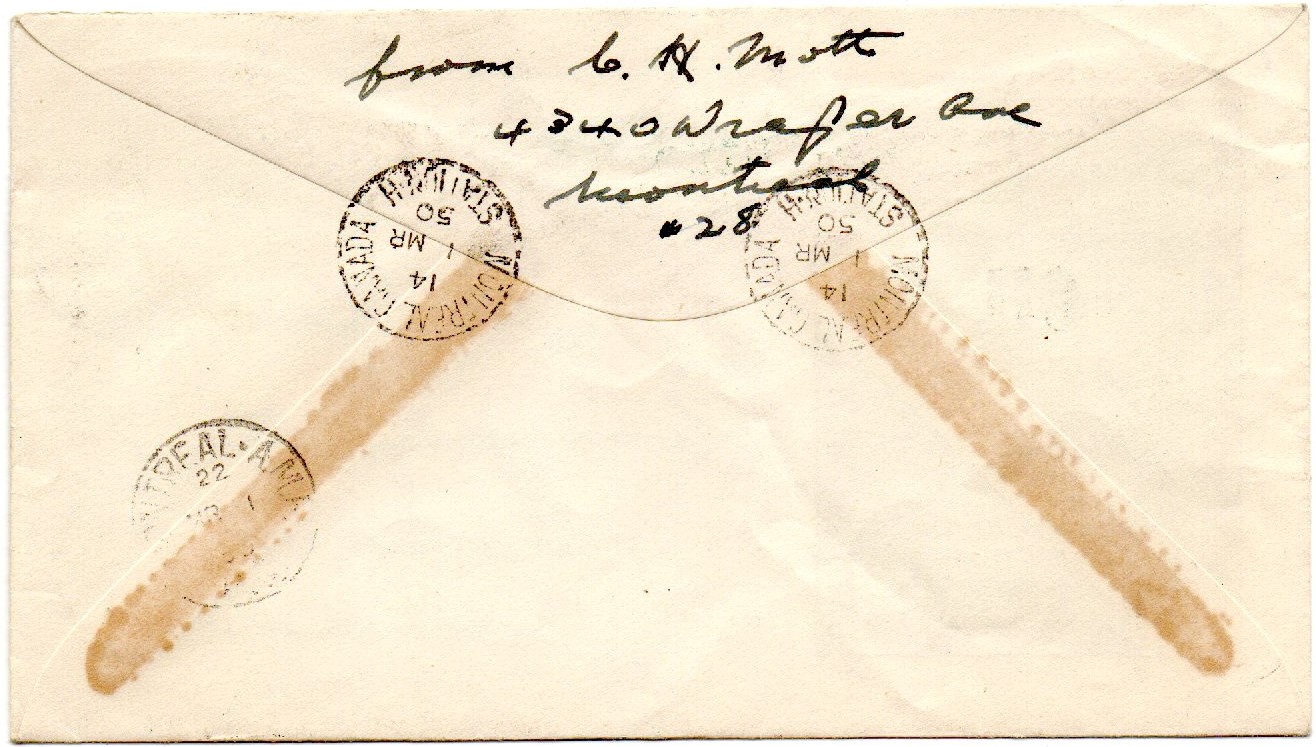 from C. H. Mott
4340 Wraper Ave
Montreal
#28
MONTREAL CANADA
STATION H
14
1 MR
50
MONTREAL CANADA
STATION H
14
1 MR
50
MONTREAL · A.M
22
1